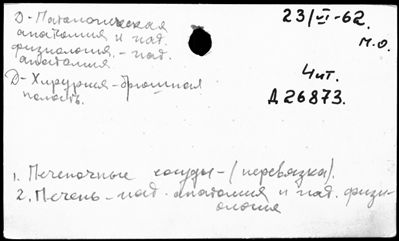 Д-Патологическая
анатомия и пат.
физиология. - пат.
анатомия
Д-Хирургия-брюшная
полость.
23/VI-62.
М.О.
4 чит.
Д26873.
1. Печеночные сосуды-(перевязка).
2. Печень-пат. анатомия и пат. физи-
ология